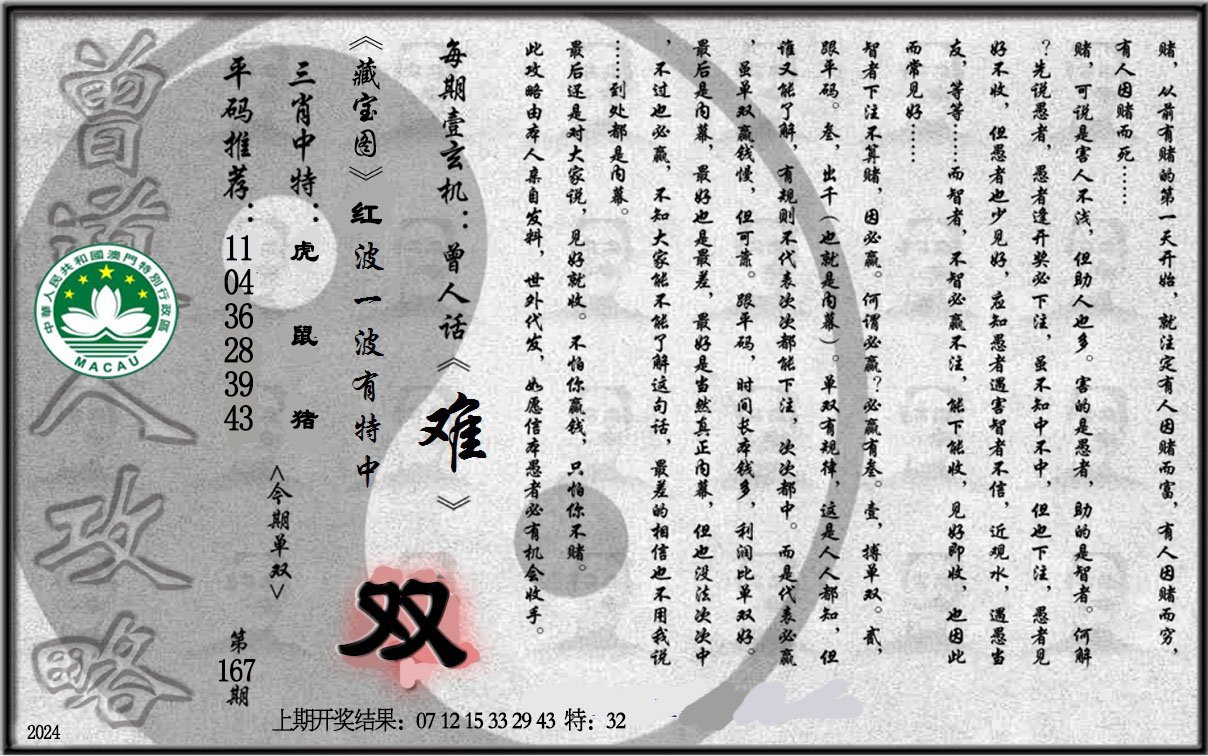 赌，从前有赌的第一天开始，就注定有人因赌而富，有人因赌而穷，
有人因赌而死……
赌，可说是害人不浅，但助人也多。害的是愚者，助的是智者。何解
？先说愚者，愚者逢开奖必下注，虽不知中不中，但也下注，愚者见
好不收，但愚者也少见好，应知愚者遇害智者不信，近观水，遇愚当
友，等等……而智者，不智必赢不注，能下能收，见好即收，也因此
而常见好……
智者下注不算赌，因必赢。何谓必赢？必赢有叁。壹，搏单双。贰，
跟平码。叁，出千（也就是内幕）。单双有规律，这是人人都知，但
谁又能了解，有规则不代表次次都能下注，次次都中。而是代表必赢
，虽单双赢钱慢，但可靠。跟平码，时间长本钱多，利润比单双好。
最后是内幕，最好也是最差，最好是当然真正内幕，但也没法次次中
，不过也必赢，不知大家能不能了解这句话，最差的相信也不用我说
……到处都是内幕。
最后还是对大家说，见好就收。不怕你赢钱，只怕你不赌。
此攻略由本人亲自发料，世外代发，如愿信本愚者必有机会收手。
每期壹玄机：曾人话《难》
《藏宝图》红波一波有特中
双
三肖中特：虎 鼠 猪
<今期单双>
平码推荐：11 04 36 28 39 43
第167期
曾道人攻略
中華人民共和國澳門特別行政區
MACAU
上期开奖结果：07 12 15 33 29 43 特：32
2024